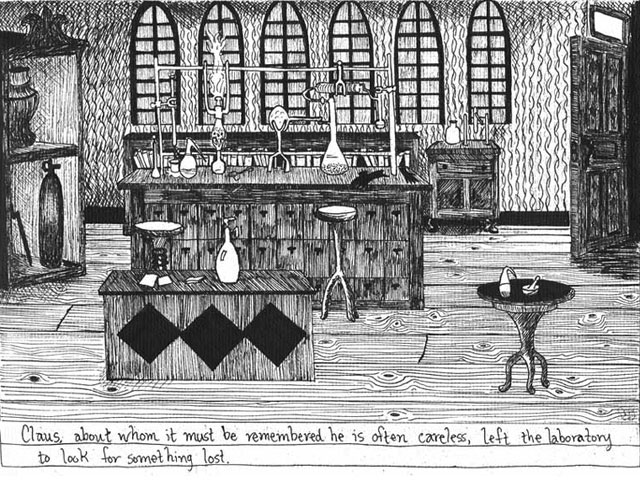 Claus, about whom it must be remembered he is often careless, left the laboratory
to look for something lost.